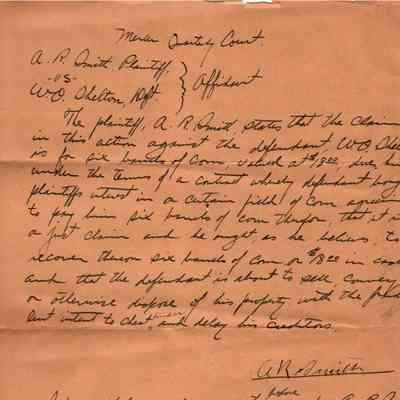 Mercer Quarterly Court.
A. R. Smith Plaintiff,
-vs- } Affidavit
W.O. Shelton, Dft.
The plaintiff, A. R. Smith, states that the claim
in this action against the defendant, W.O. Shel
is for six barrels of corn, valued at $18.00, due him
under the terms of a contract whereby defendant boug
plaintiffs interest in a certain field of corn agreein
to pay him six barrels of corn therefor, that it is
a just claim and he ought, as he believes, to
recover thereon six barrels of corn or $18.00 in cash
and that the defendant is about to sell, convey
or otherwise dispose of his property with the fraud
lent intent to cheat, hinder and delay his creditors.
A R Smith
before